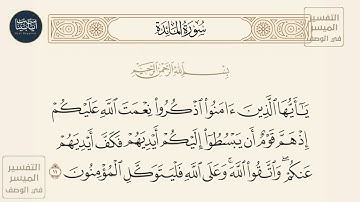 سُورَةُ المَائِدَةِ
بِسْمِ اللَّهِ الرَّحْمَٰنِ الرَّحِيمِ
يَٰٓأَيُّهَا ٱلَّذِينَ ءَامَنُوا۟ ٱذْكُرُوا۟ نِعْمَتَ ٱللَّهِ عَلَيْكُمْ
إِذْ هَمَّ قَوْمٌ أَن يَبْسُطُوٓا۟ إِلَيْكُمْ أَيْدِيَهُمْ فَكَفَّ أَيْدِيَهُمْ
عَنكُمْ ۖ وَٱتَّقُوا۟ ٱللَّهَ ۚ وَعَلَى ٱللَّهِ فَلْيَتَوَكَّلِ ٱلْمُؤْمِنُونَ ١١
التفسير
الميسر
في الوصف
التفسير
الميسر
في الوصف